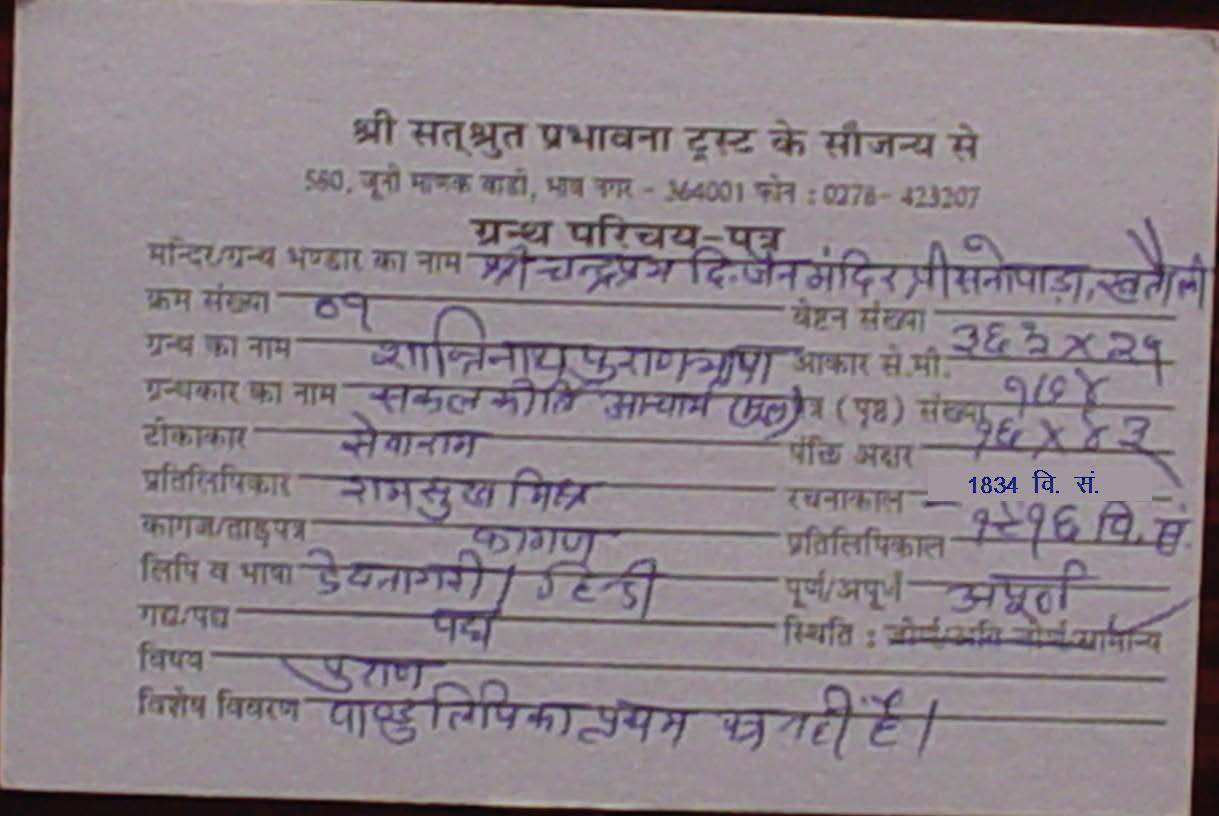 श्री सत्श्रुत प्रभावना ट्रस्ट के सौजन्य से
560, जूनी माणक वाडी, भाव नगर - 364001 फोन : 0278- 423207
ग्रन्थ परिचय-पत्र
मन्दिर/ग्रन्थ भण्डार का नाम श्री चन्द्रप्रभ दि. जैन मंदिर श्री खतौली
क्रम संख्या ०१ वेष्टन संख्या
ग्रन्थ का नाम शान्तिनाथ पुराण भाषा आकार से.मी.
ग्रन्थकार का नाम सकलकीर्ति आचार्य (मूल) पत्र (पृष्ठ) संख्या १७४
टीकाकार सेवाराम पंक्ति अक्षर १६ x ४३
प्रतिलिपिकार रामसुख मिश्र रचनाकाल 1834 वि. सं.
कागज/ताड़पत्र कागज प्रतिलिपिकाल वि. सं.
लिपि व भाषा देवनागरी / हिन्दी पूर्ण/अपूर्ण अपूर्ण
गद्य/पद्य पद्य स्थिति : जीर्ण/अति जीर्ण/सामान्य
विषय पुराण
विशेष विवरण पाण्डुलिपि का प्रथम पत्र नहीं है।